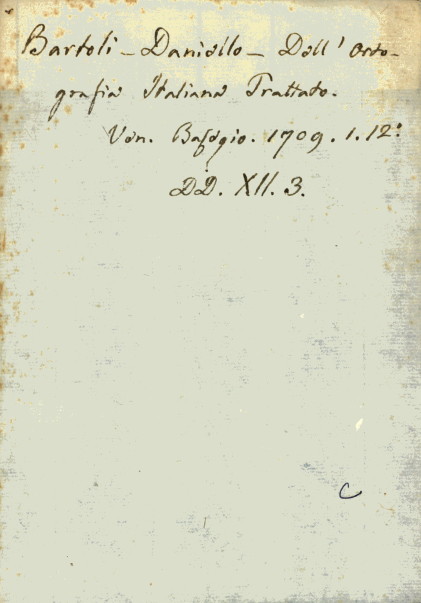 Bartoli - Daniello - Dell' Orto-
grafia Italiana Trattato.
Ven. Baseggio. 1709. 1. 12:
DD. XII. 3.
C